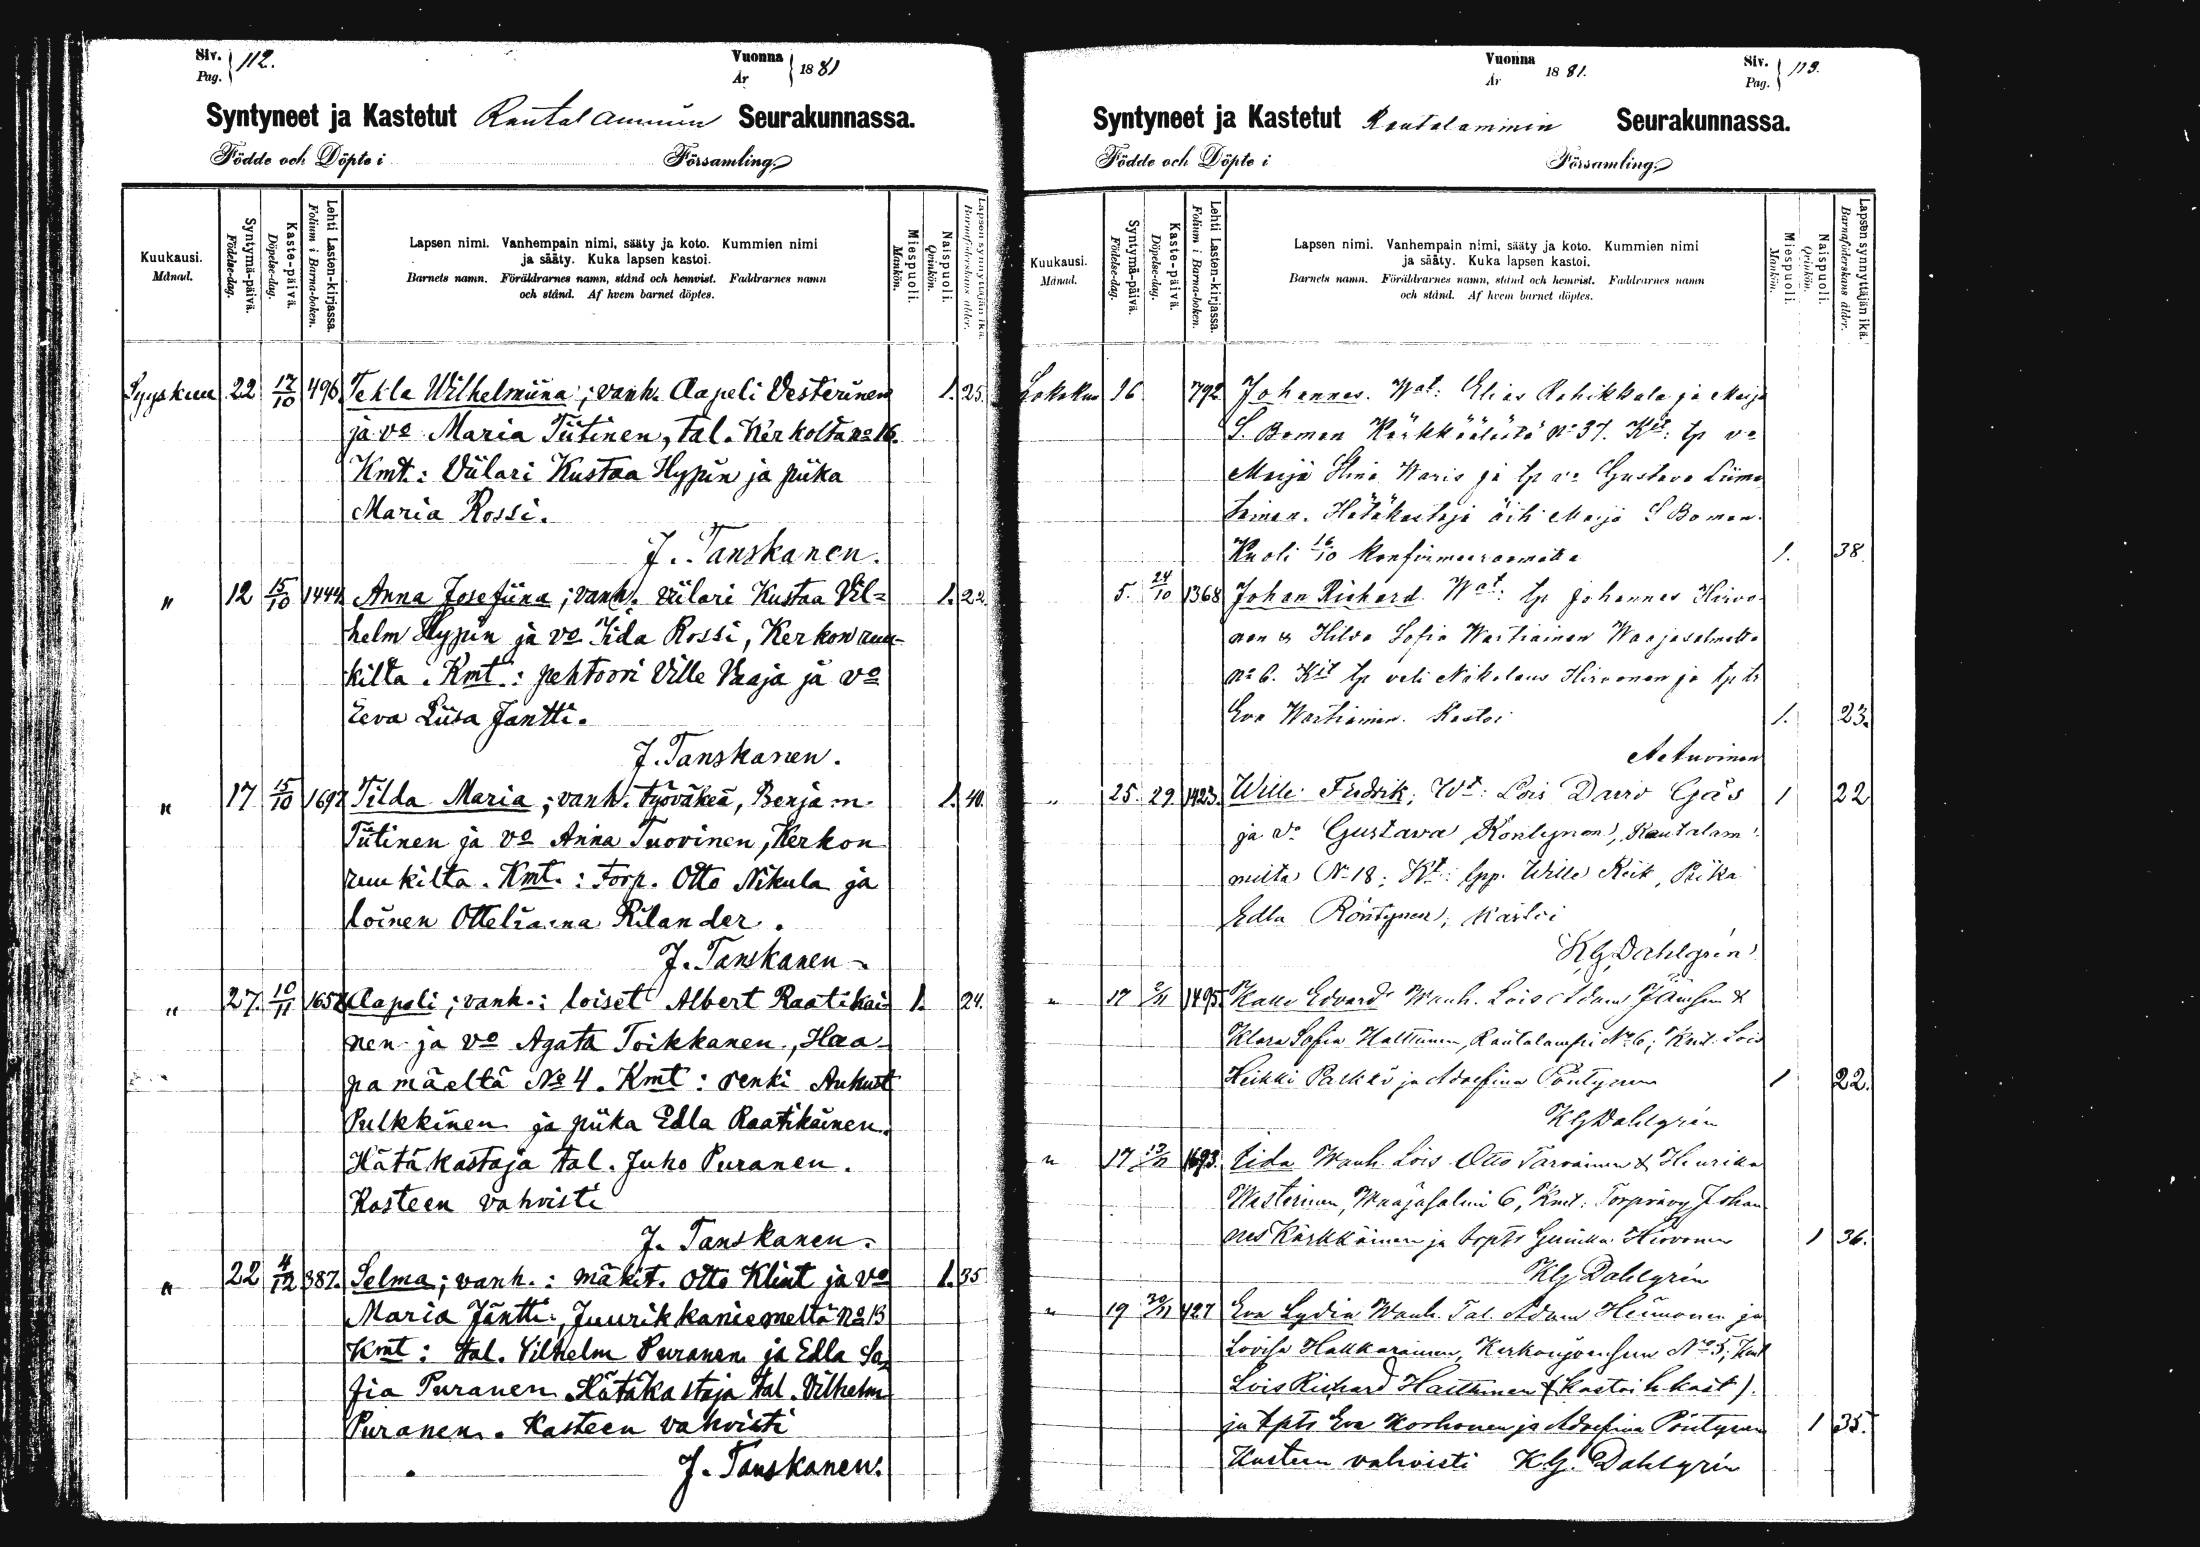 Siv. Pag. 112.
Vuonna År 1881
Syntyneet ja Kastetut Rautalammin Seurakunnassa.
Födde och Döpte i Församling.
Kuukausi. Månad.
Syntymä-päivä. Födelse-dag.
Kaste-päivä. Döpelse-dag.
Lehti Lasten-kirjassa. Folium i Barna-boken.
Lapsen nimi. Vanhempain nimi, sääty ja koto. Kummien nimi
ja sääty. Kuka lapsen kastoi.
Barnets namn. Föräldrarnes namn, stånd och hemvist. Faddrarnes namn
och stånd. Af hvem barnet döptes.
Miespuoli. Mankön.
Naispuoli. Qvinkön.
Lapsen synnyttäjän ikä. Barnaföderskans ålder.
Syyskuu 22 12/10 496 Tekla Wilhelmiina; vanh. Aapeli Vesterinen 1. 25.
ja vo Maria Tiitinen, tal. Kerkolta No 16.
Kmt.: Viilari Kustaa Hypin ja piika
Maria Rossi.
J. Tanskanen.
" 12 15/10 1444 Anna Josefiina; vanh. viilari Kustaa Vil= 1. 22.
helm Hypin ja vo Iida Rossi, Kerkon ruu-
kilta. Kmt.: pehtoori Ville Vaaja ja vo
Eeva Liisa Jäntti.
J. Tanskanen.
" 17 15/10 1697 Tilda Maria; vanh. työväkeä, Benjam. 1. 40.
Tiitinen ja vo Anna Tuovinen, Kerkon
ruukilta. Kmt.: torp. Otto Nikula ja
loinen Otteliaana Rilander.
J. Tanskanen.
" 27. 10/11 1658 Aapeli; vanh.: loiset Albert Raatikai= 1. 24.
nen ja vo Agata Toikkanen, Haa-
pamäeltä No 4. Kmt: renki Aukust
Pulkkinen ja piika Edla Raatikainen.
Hätäkastaja tal. Juho Puranen.
Kasteen vahvisti
J. Tanskanen.
" 22 4/12 387. Selma; vanh.: mäkit. Otto Klint ja vo 1. 35
Maria Jäntti, Juurikkaniemeltä No 13
Kmt: tal. Vilhelm Puranen ja Edla So=
fia Puranen. Hätäkastaja tal. Vilhelm
Puranen. Kasteen vahvisti
J. Tanskanen.
Vuonna År 1881.
Siv. Pag. 113.
Syntyneet ja Kastetut Rautalammin Seurakunnassa.
Födde och Döpte i Församling.
Kuukausi. Månad.
Syntymä-päivä. Födelse-dag.
Kaste-päivä. Döpelse-dag.
Lehti Lasten-kirjassa. Folium i Barna-boken.
Lapsen nimi. Vanhempain nimi, sääty ja koto. Kummien nimi
ja sääty. Kuka lapsen kastoi.
Barnets namn. Föräldrarnes namn, stånd och hemvist. Faddrarnes namn
och stånd. Af hvem barnet döptes.
Miespuoli. Mankön.
Naispuoli. Qvinkön.
Lapsen synnyttäjän ikä. Barnaföderskans ålder.
Lokakuu 16 792 Johannes. Wat: Elias Rahikkala ja Maija
S. Boman Kärkkäälästä No 37. Kit: tp vo
Maija Stina Waris ja tp vo Gustava Liima
tainen. Hätäkastaja äiti Maija S Boman.
Kuoli 16/10 konfirmeeraamatta 1. 38.
5. 24/10 1368 Johan Richard. Wat: tp Johannes Hirvo-
nen & Hilda Sofia Wartiainen Waajasalmelta
No 6. Kit tp veli Nikolaus Hirvonen ja tp tr
Eva Wartiainen. Kastoi 1. 23.
A Auvinen
" 25. 29 1423. Wille Fredrik; Wt: Lois David Gås 1 22
ja vo Gustava Röntynen, Rautalam-
milta No 18; Kt: tpp. Wille Reik, Piika
Edla Röntynen; Kastoi
KG Dahlgrén
" 17 2/11 1495. Kalle Edvard Wanh. Lois Adam Jämsen &
Klara Sofia Halttunen, Rautalampi No 6; Kmt. Lois
Heikki Parkki ja Adolfina Pöntynen 1 22.
KG Dahlgrén
" 17 13/11 1693. Iida Wanh. Lois Otto Tarvainen & Henrika
Westerinen, Waajasalmi 6, Kmt: Torpvävy Johan
nes Kärkkäinen ja torptr Hirvonen 1 36.
KG Dahlgrén
" 19 20/11 427 Eva Lydia Wanh. Tal. Adam Heimonen ja
Lovisa Hakkarainen, Kerkonjoensuu No 5; Kmt
Lois Richard Halttunen (kastoi h.kast).
ja tptr Eva Korhonen ja Adolfina Pöntynen 1 35.
Kasteen vahvisti KG. Dahlgrén